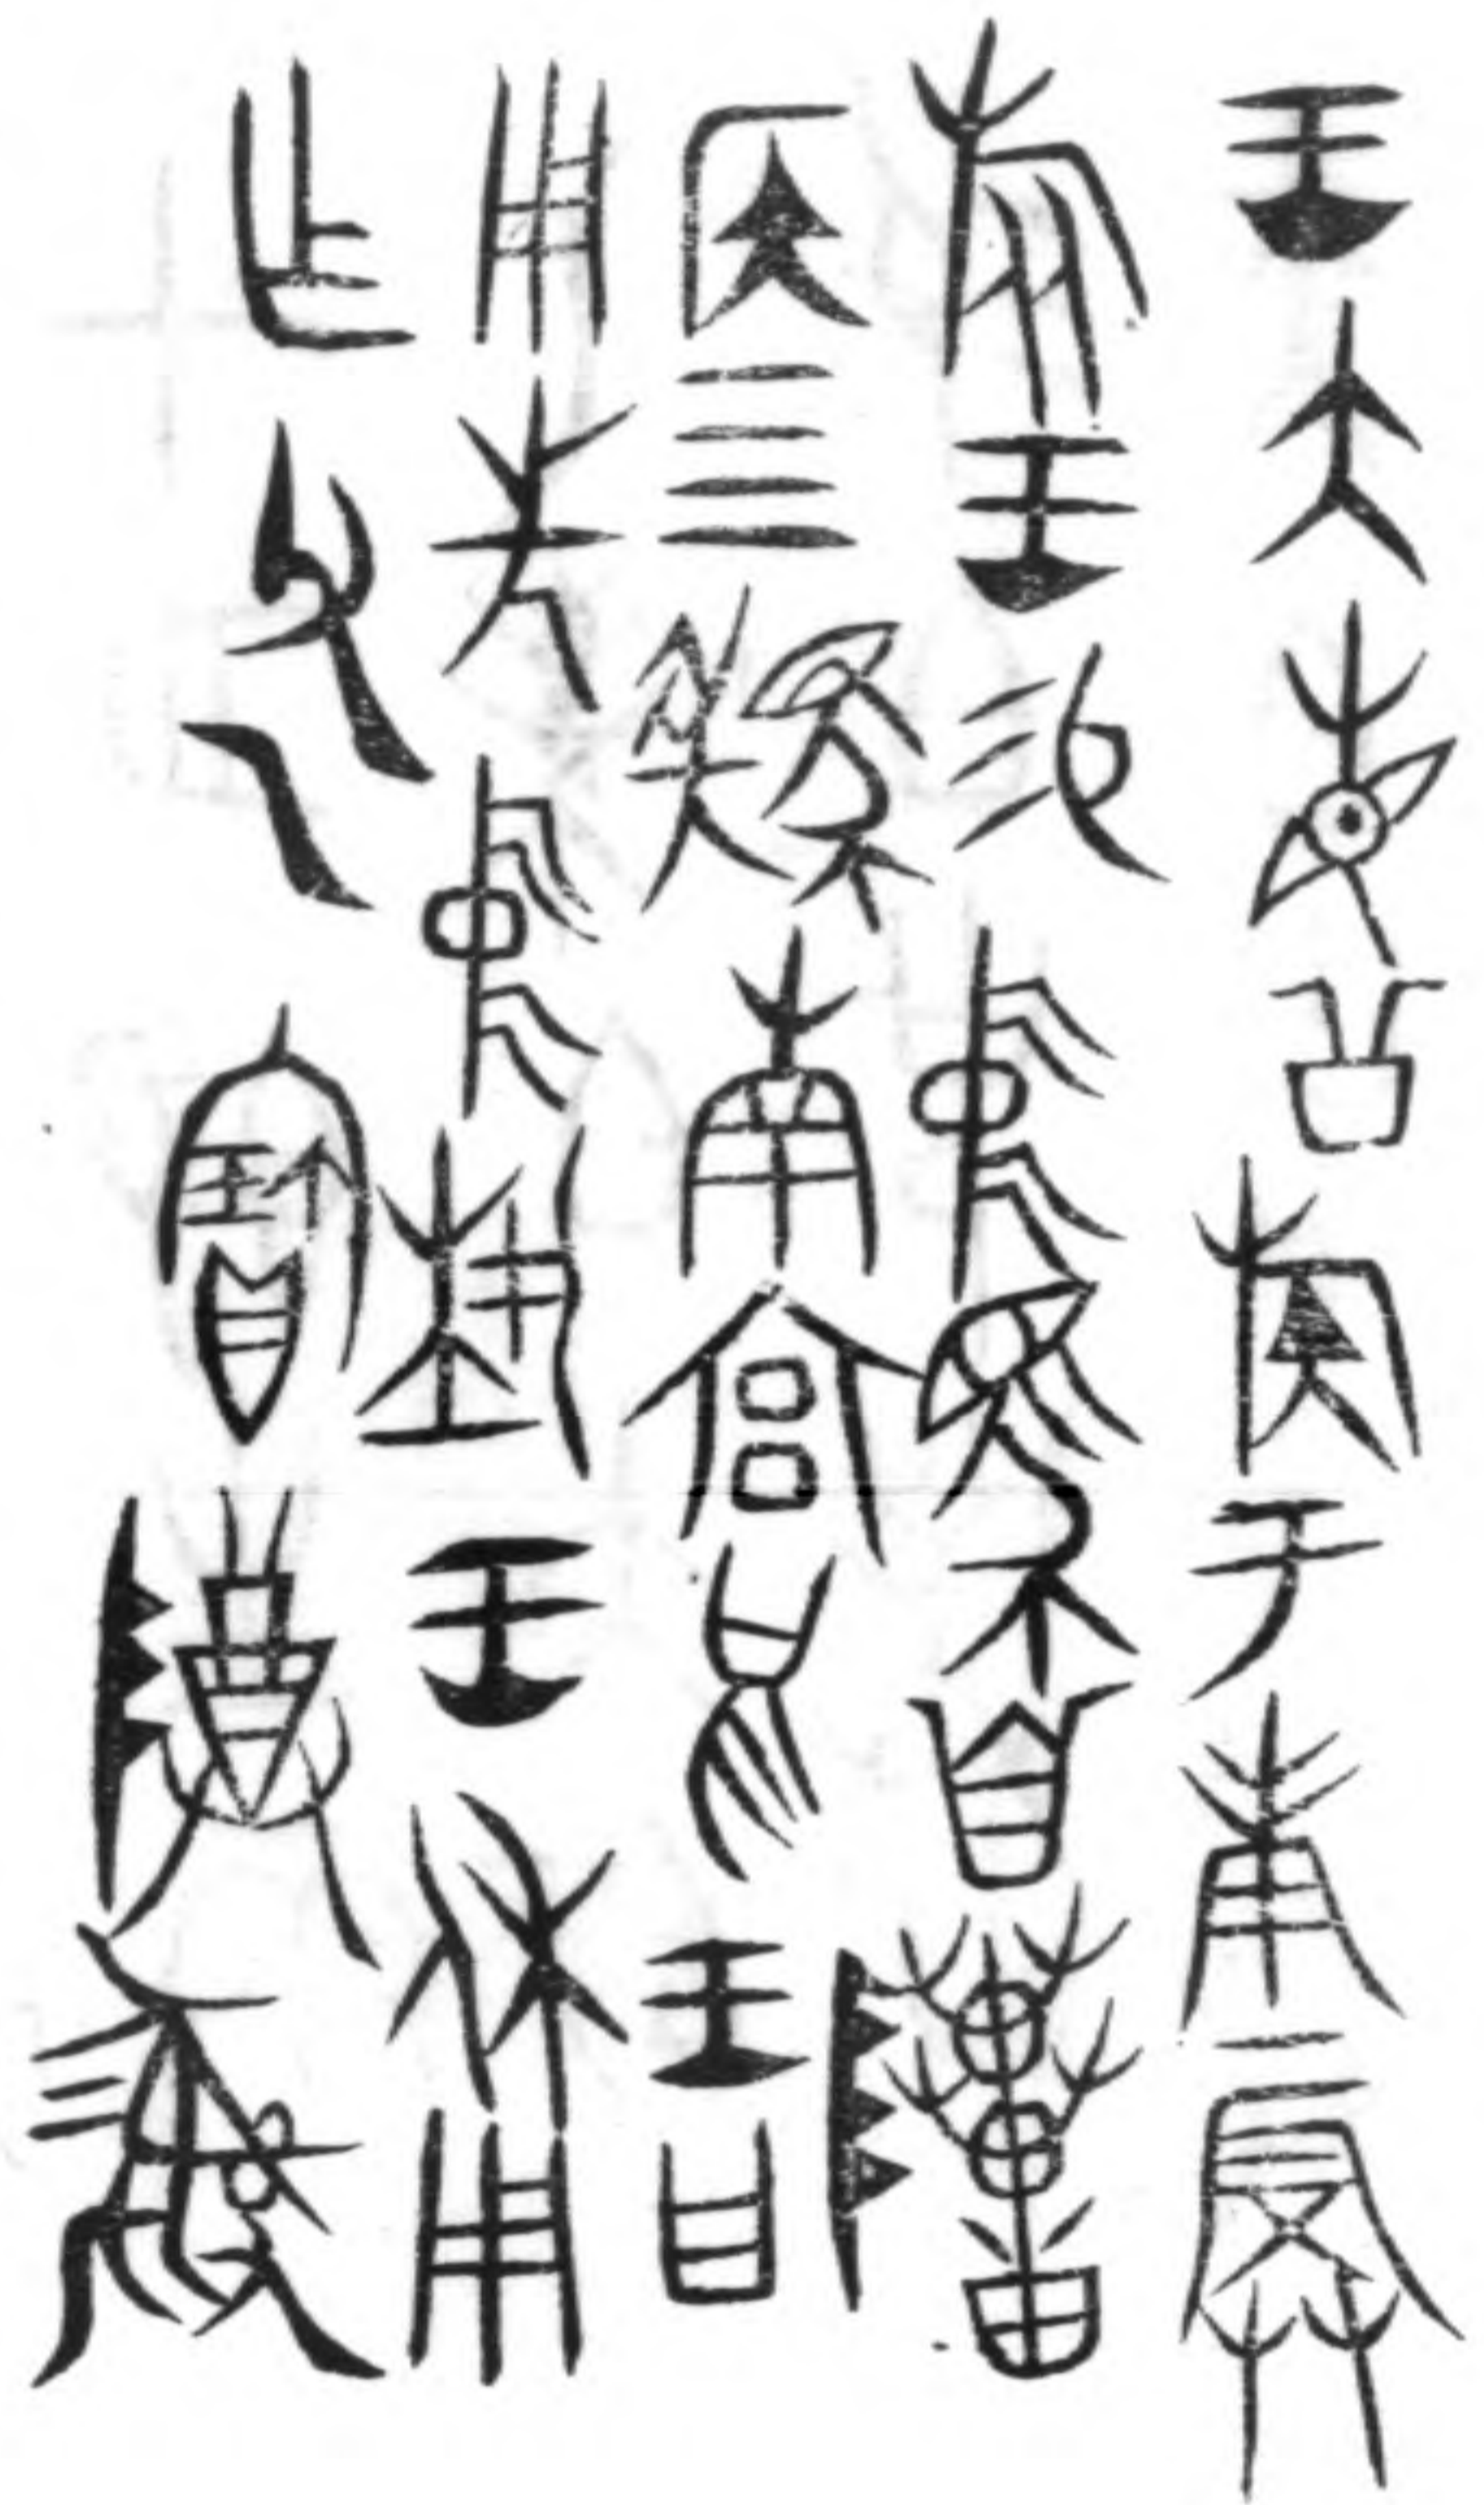 王大省公族于庚辰
旅王易中馬自
侯四南宮兄王曰
用先中埶王休用
乍父乙寶尊彝